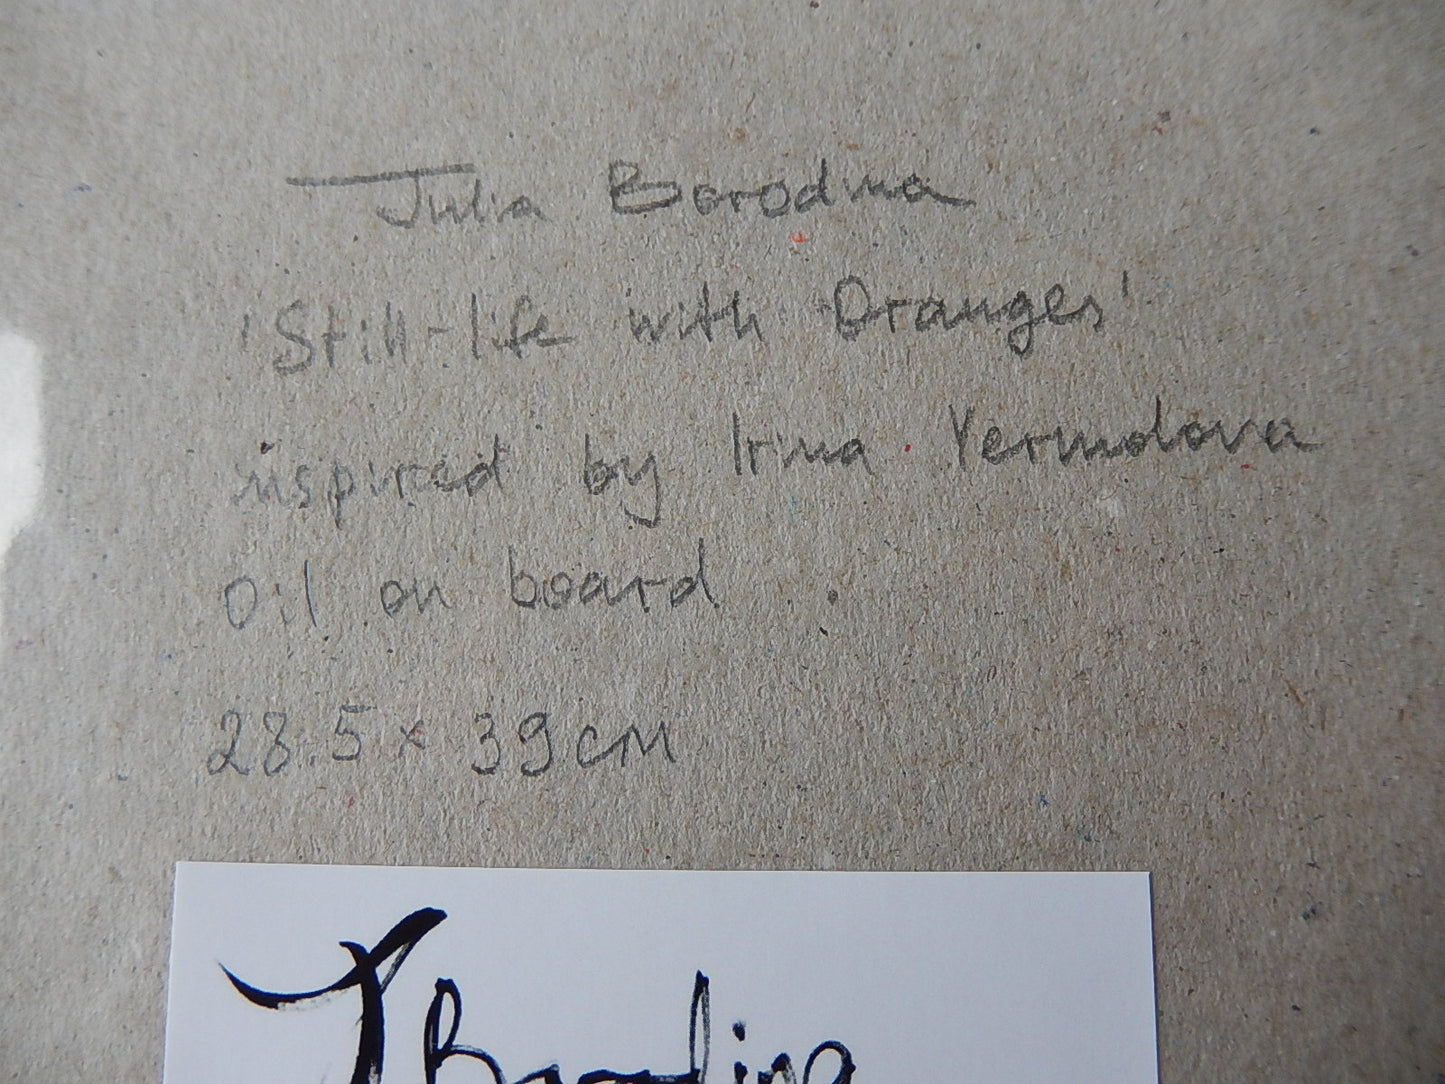 Julia Borodina
'Still-life with Oranges'
inspired by Irina Yermolova
Oil on board
28.5 x 39cm
J Borodina